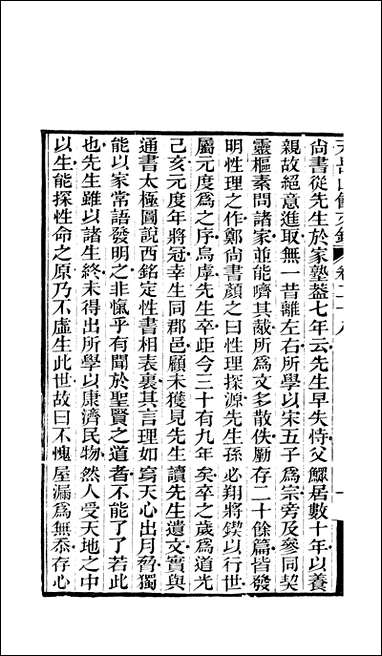 天岳山館文鈔 卷二十八 一
尚書從先生於家塾葢七年云先生早失恃父鰥居數十年以養
親故絕意進取無一昔離左右所學以宋五子爲宗旁及參同契
靈樞素問諸家並能嚌其胾所爲文多散佚勵存二十餘篇皆發
明性理之作鄭尚書顏之曰性理探源先生孫必翔將鍥以行世
屬元度爲之序烏虖先生卒距今三十有九年矣卒之歲爲道光
己亥元度年將冠幸生同郡邑顧未獲見先生讀先生遺文實與
通書太極圖說西銘定性書相表裏其言理如寫天心出月脅獨
能以家常語發明之非愾乎有聞於聖賢之道者不能了了若此
也先生雖以諸生終未得出所學以康濟民物然人受天地之中
以生能探性命之原乃不虛生此世故曰不愧屋漏爲無忝存心